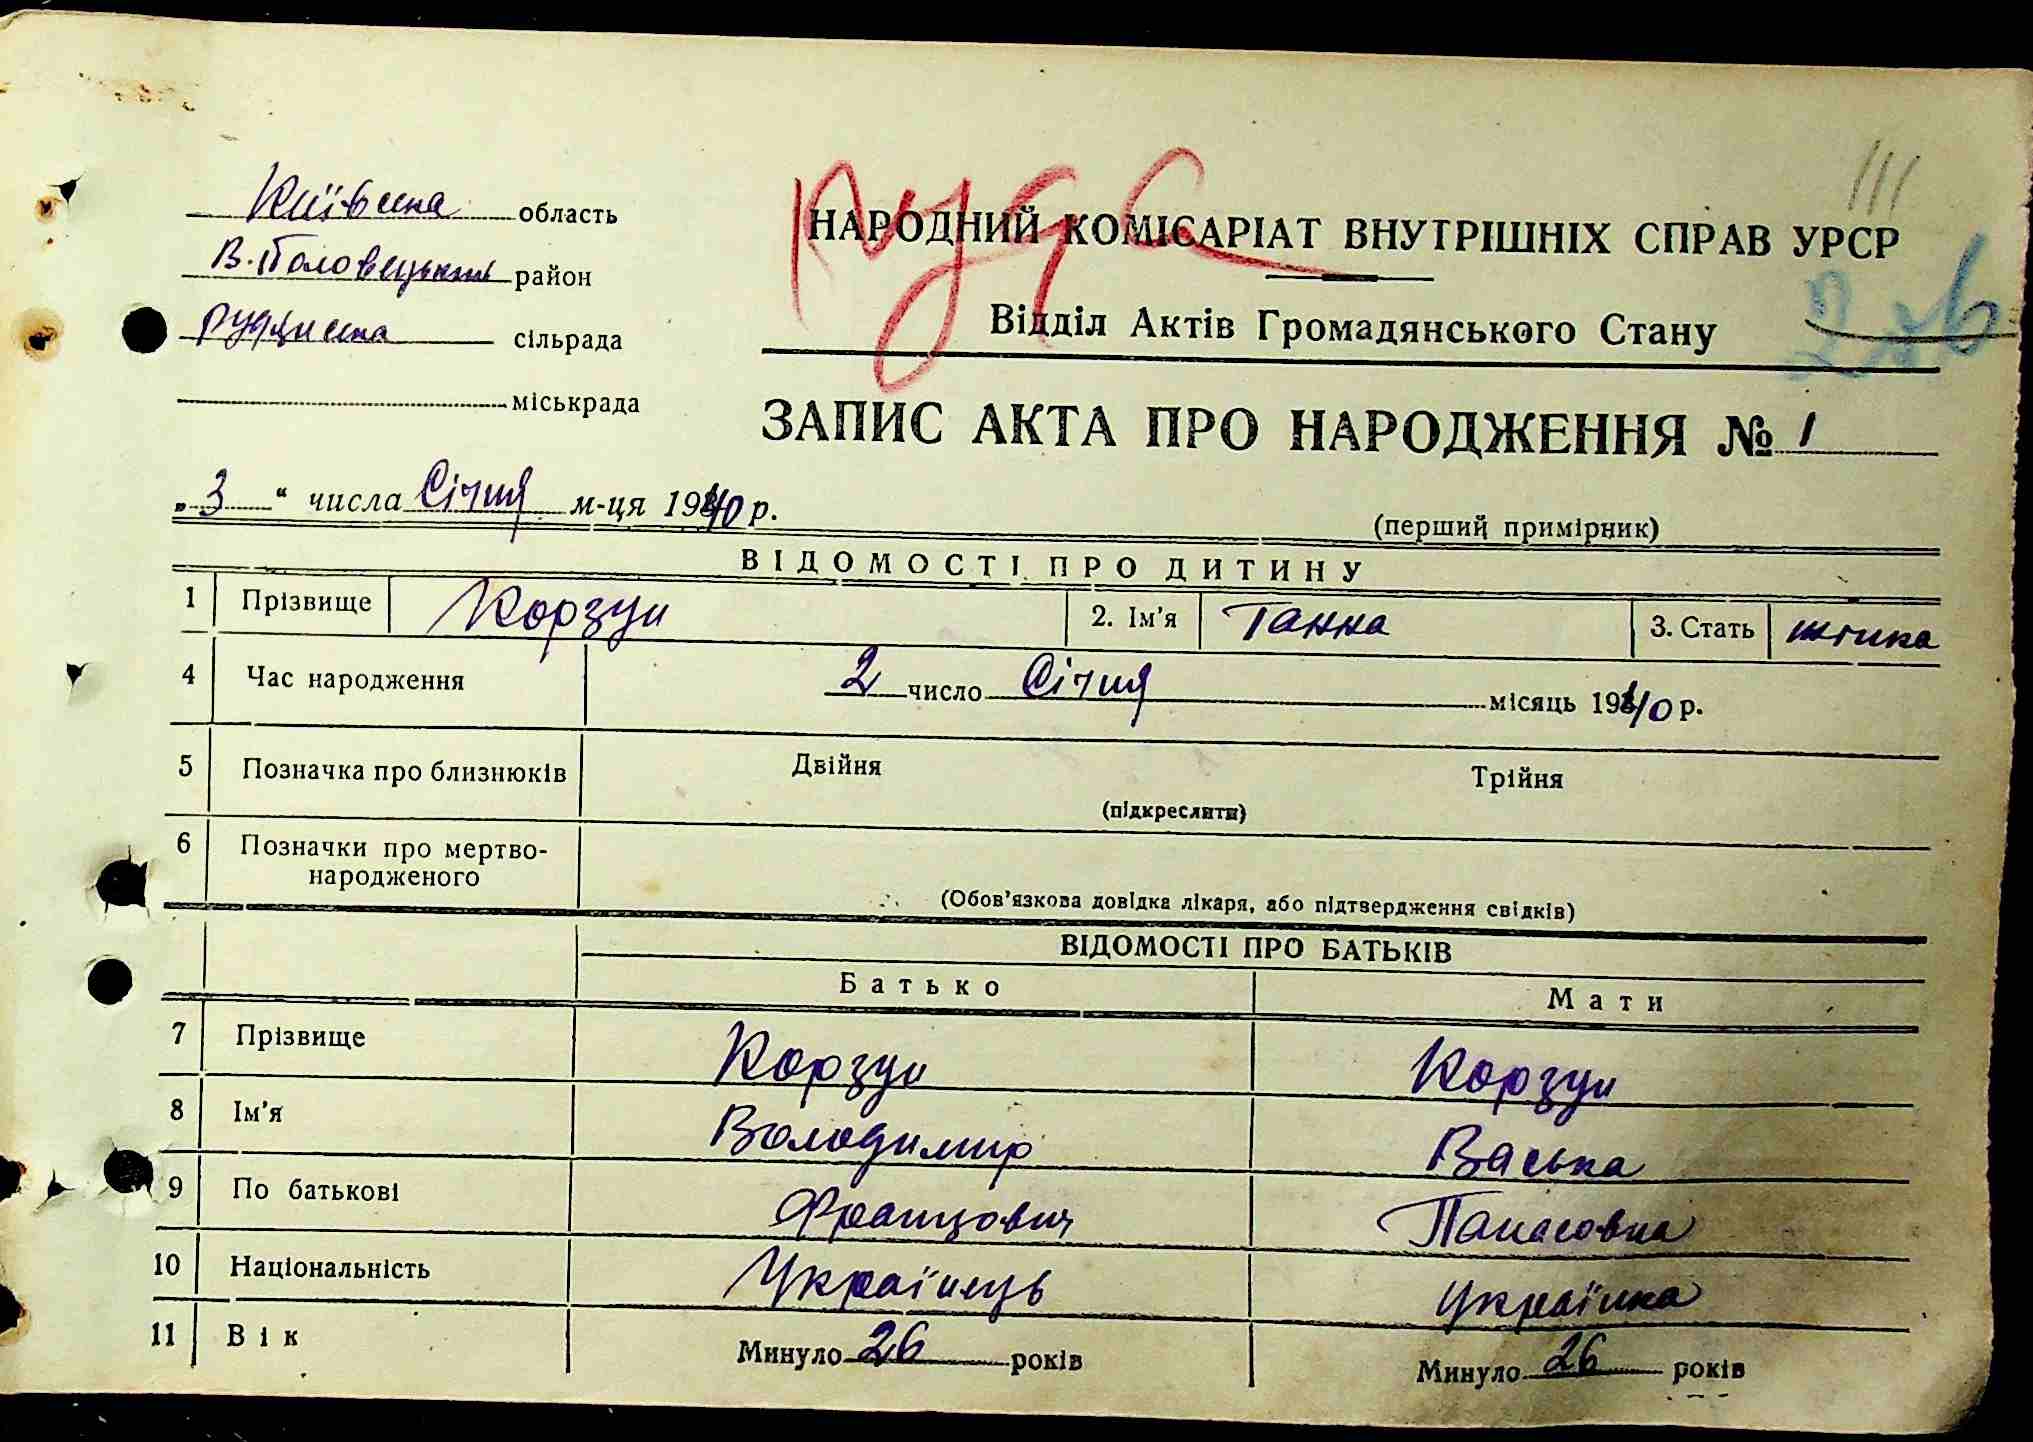 Київська область
В. Половецький район
Рудянська сільрада
міськрада
Руда
НАРОДНИЙ КОМІСАРІАТ ВНУТРІШНІХ СПРАВ УРСР
Відділ Актів Громадянського Стану
III
ЗАПИС АКТА ПРО НАРОДЖЕННЯ № 1
„3“ числа Січня м-ця 1940 р.
(перший примірник)
ВІДОМОСТІ ПРО ДИТИНУ
1 Прізвище Корзун 2. Ім'я Ганна 3. Стать жінка
4 Час народження 2 число Січня місяць 1940 р.
5 Позначка про близнюків Двійня Трійня
(підкреслити)
6 Позначки про мертво-
народженого
(Обов'язкова довідка лікаря, або підтвердження свідків)
ВІДОМОСТІ ПРО БАТЬКІВ
Батько Мати
7 Прізвище Корзун Корзун
8 Ім'я Володимир Васька
9 По батькові Францович Панасовна
10 Національність Українець Українка
11 Вік Минуло 26 років Минуло 26 років